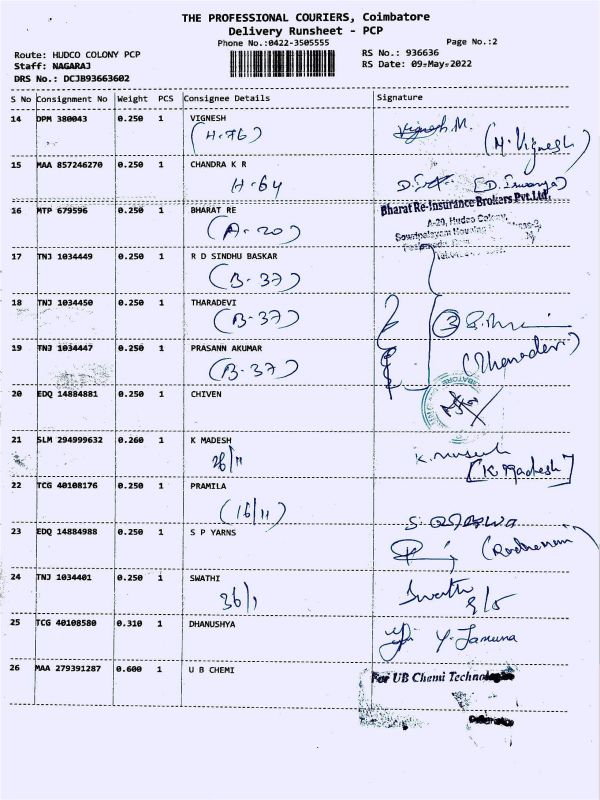 THE PROFESSIONAL COURIERS, Coimbatore
Delivery Runsheet - PCP
Phone No.:0422-3505555
Page No.:2
Route: HUDCO COLONY PCP
RS No.: 936636
Staff: NAGARAJ
RS Date: 09-May-2022
DRS No.: DCJB93663602
S No Consignment No Weight PCS Consignee Details Signature
14 DPM 380043 0.250 1 VIGNESH
(H-76) Vignesh M. (M. Vignesh)
15 MAA 857246270 0.250 1 CHANDRA K R
H-64
16 MTP 679596 0.250 1 BHARAT RE Bharat Re-Insurance Brokers Pvt.Ltd.
(A-20) A-20, Hudco Colony,
17 TNJ 1034449 0.250 1 R D SINDHU BASKAR
(B-37)
18 TNJ 1034450 0.250 1 THARADEVI
(B-37) 3
19 TNJ 1034447 0.250 1 PRASANN AKUMAR
(B-37)
20 EDQ 14884881 0.250 1 CHIVEN
21 SLM 294999632 0.260 1 K MADESH
26/11 [K. Madesh]
22 TCG 40108176 0.250 1 PRAMILA
(16/11)
23 EDQ 14884988 0.250 1 S P YARNS
24 TNJ 1034401 0.250 1 SWATHI Swathi
36/1 9/5
25 TCG 40108580 0.310 1 DHANUSHYA Y. Jamuna
26 MAA 279391287 0.600 1 U B CHEMI For UB Chemi Technologies